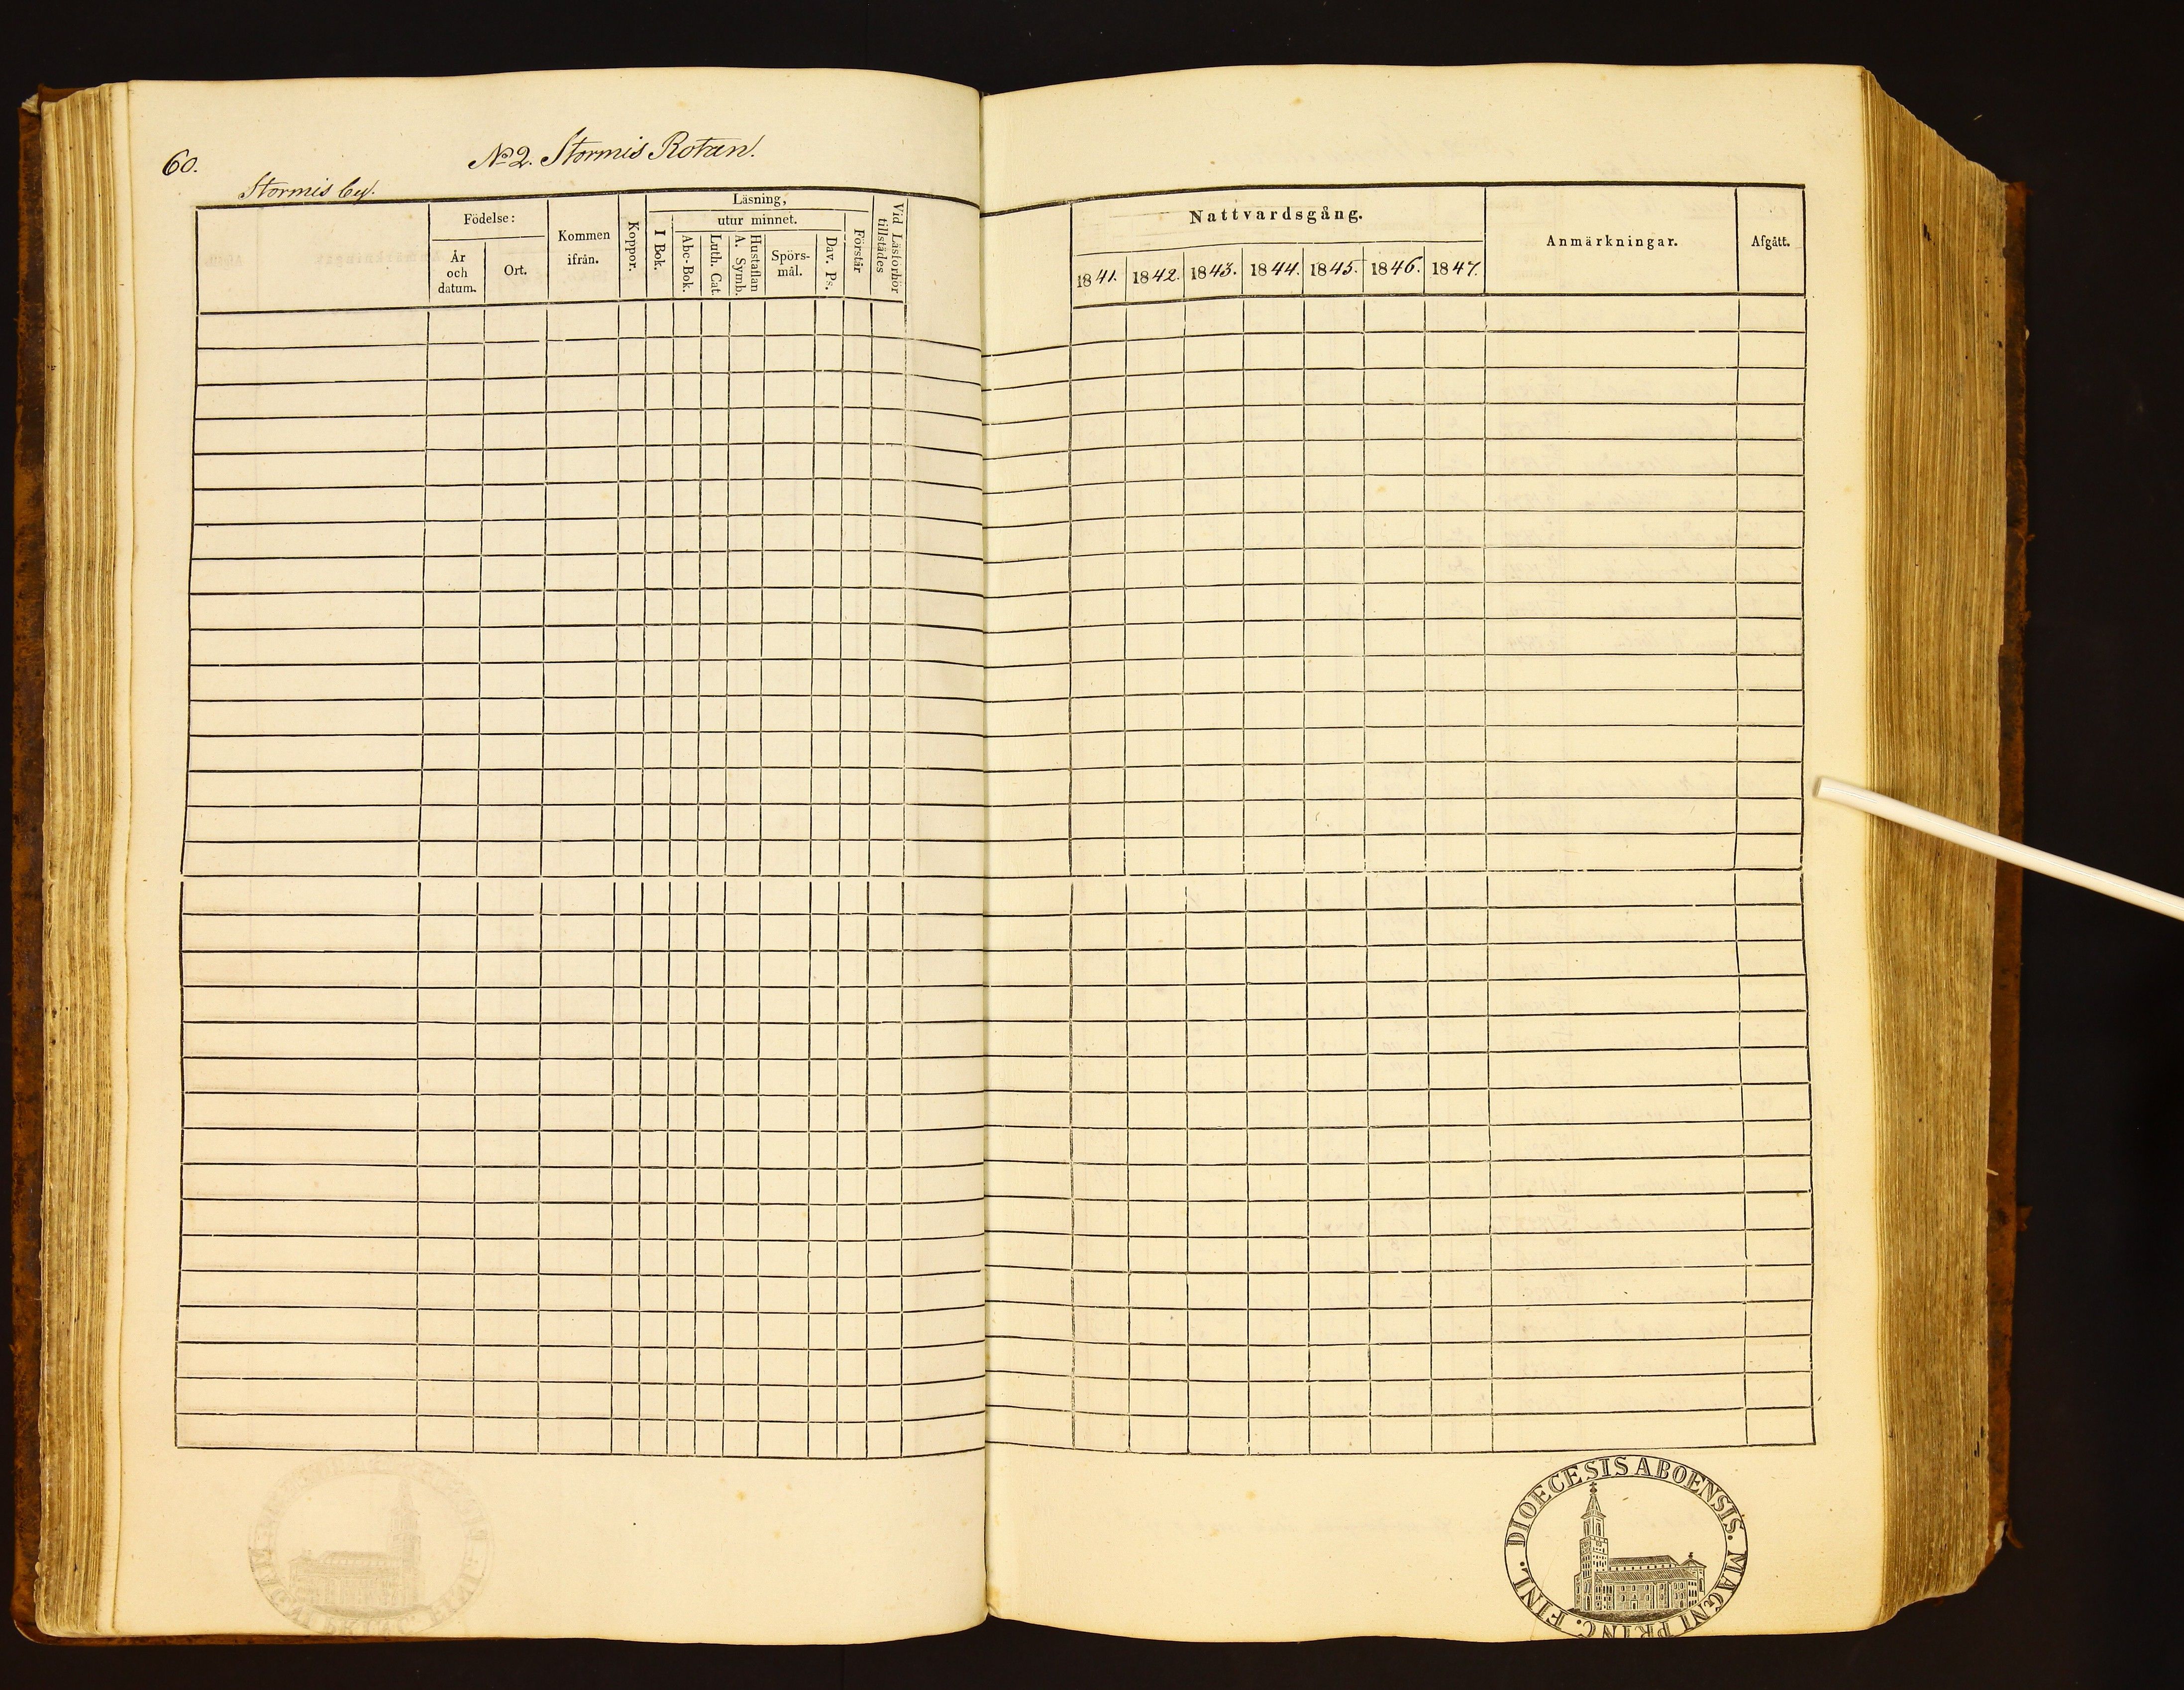 60.
No 2. Stormis Rotan.
Stormis by.
Födelse:
År
och
datum.
Ort.
Kommen
ifrån.
Koppor.
Läsning,
I Bok.
utur minnet.
Abc-Bok.
Luth. Cat.
Hustaflan
A. Symb.
Spörs-
mål.
Dav. Ps.
Förstår
Vid Läsförhör
tillstädes
Nattvardsgång.
1841. 1842. 1843. 1844. 1845. 1846. 1847.
Anmärkningar.
Afgått.
DIOECESIS ABOENSIS. MAGNI PRINC. FINL.